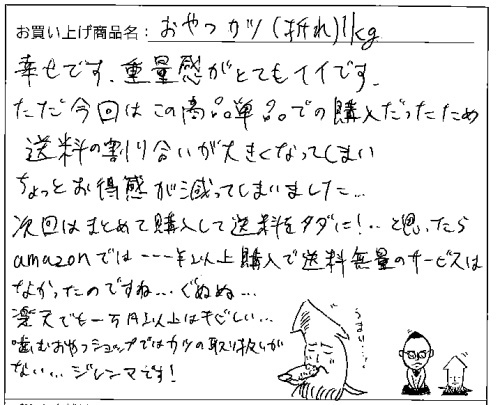 お買い上げ商品名: おやつカツ(折れ)1kg
幸せです、重量感がとてもイイです、
ただ今回はこの商品単品での購入だったため
送料の割り合いが大きくなってしまい
ちょっとお得感が減ってしまいました…
次回はまとめて購入して送料をタダに!‥と思ったら
amazonでは---¥以上購入で送料無量のサービスは
なかったのですね…ぐぬぬ…
楽天でも一万円以上はキビしい…
噛むおやつショップではカツの取り扱いが
ない…ジレンマです!
うまい…